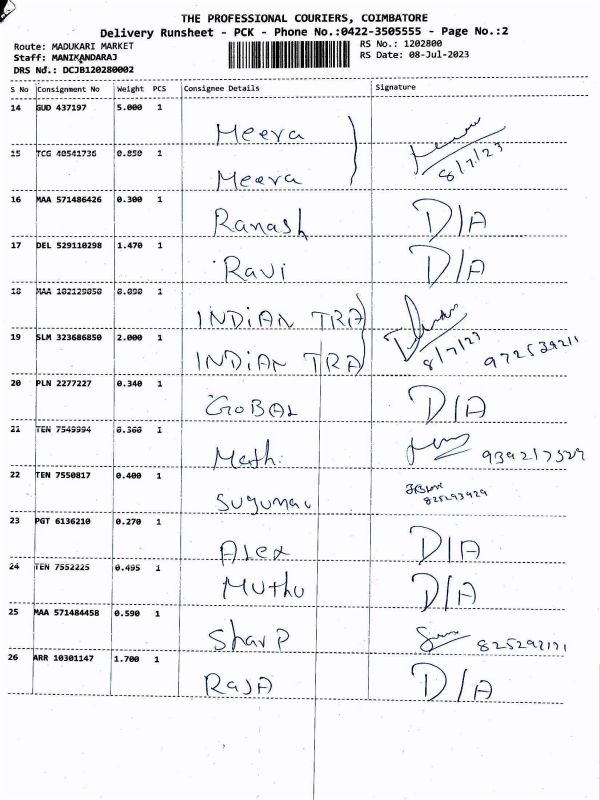 THE PROFESSIONAL COURIERS, COIMBATORE
Delivery Runsheet - PCK - Phone No.:0422-3505555 - Page No.:2
Route: MADUKARI MARKET RS No.: 1202800
Staff: MANIKANDARAJ RS Date: 08-Jul-2023
DRS No.: DCJB120280002
S No Consignment No Weight PCS Consignee Details Signature
14 GUD 437197 5.000 1 Meera
15 TCG 40541736 0.850 1 Meera 8/7/23
16 MAA 571486426 0.300 1 Ranash D/A
17 DEL 529110298 1.470 1 Ravi D/A
18 MAA 102129850 0.090 1 INDIAN TRA
19 SLM 323686850 2.000 1 INDIAN TRA 8/7/23 972539211
20 PLN 2277227 0.340 1 GOBAL D/A
21 TEN 7549994 0.360 1 Math. 939217529
22 TEN 7550817 0.400 1 Sugumar 825293929
23 PGT 6136210 0.270 1 ALex D/A
24 TEN 7552225 0.495 1 Muthu D/A
25 MAA 571484458 0.590 1 SharP 825292171
26 ARR 10301147 1.700 1 RAJA D/A